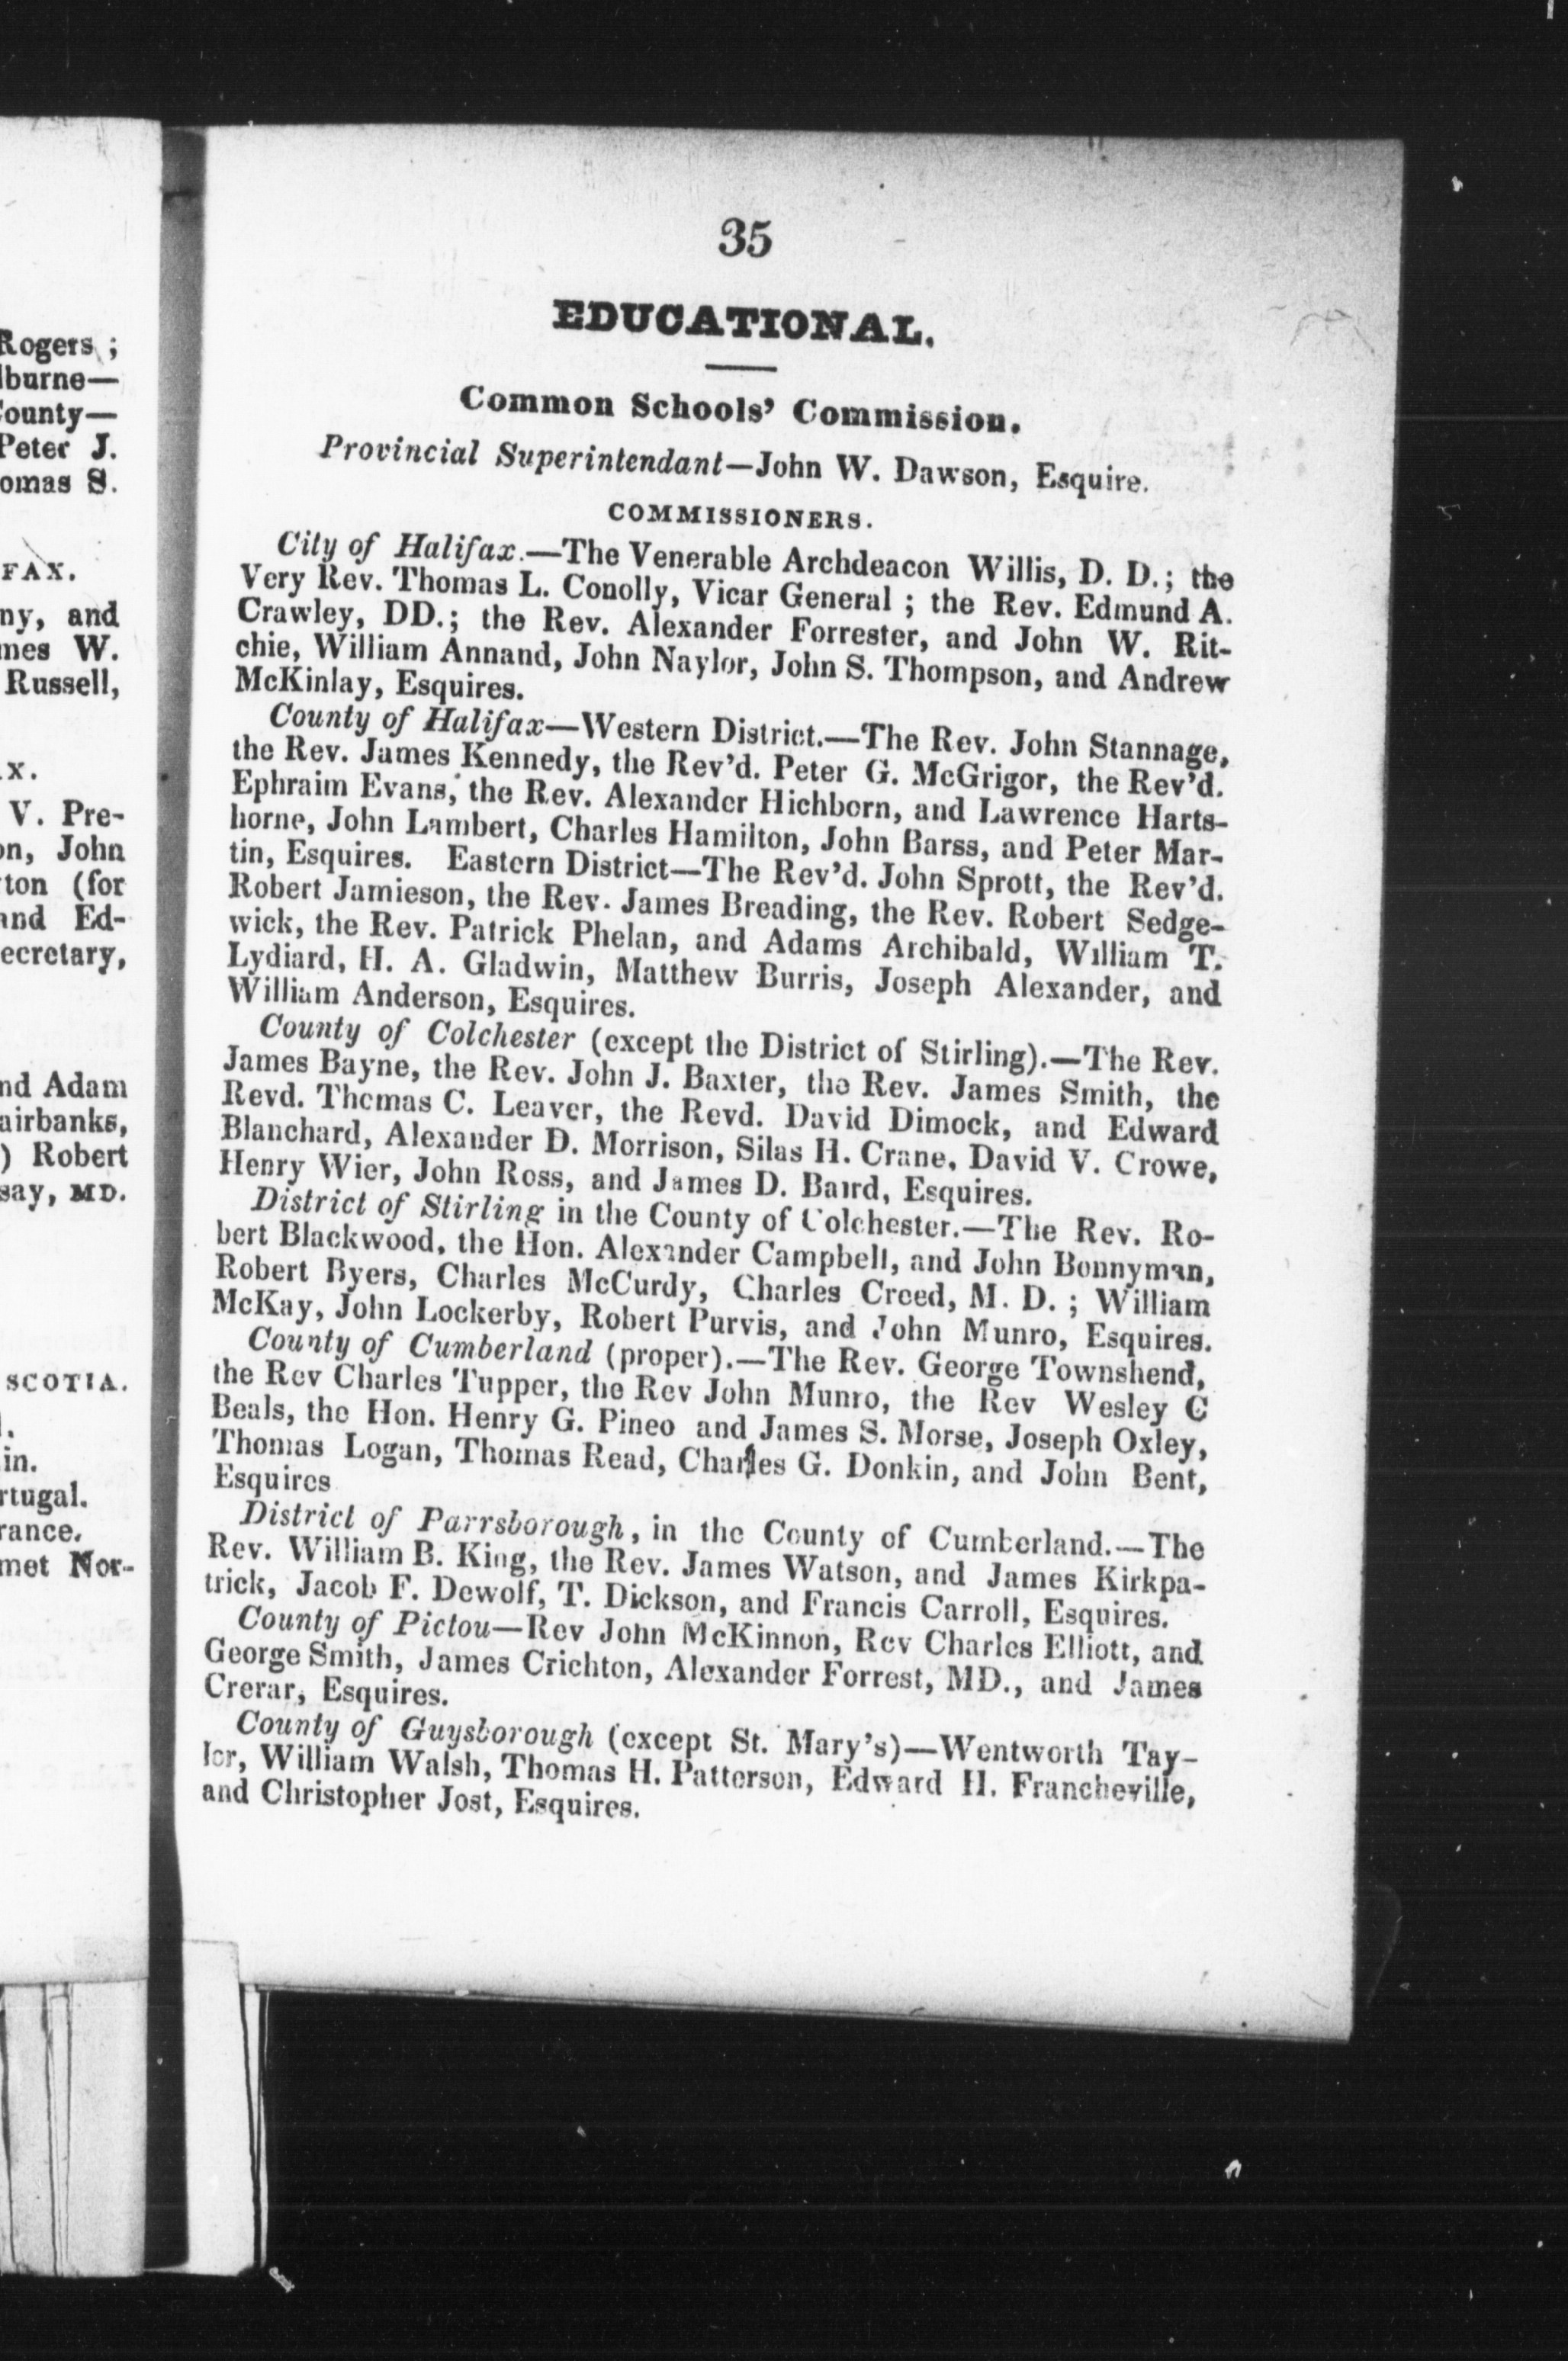 Rogers ;
lburne—
County—
Peter J.
omas S.
FAX.
ny, and
mes W.
Russell,
X.
V. Pre-
on, John
ton (for
and Ed-
ecretary,
nd Adam
airbanks,
) Robert
say, MD.
SCOTIA.
in.
rtugal.
rance.
met Nor-
35
EDUCATIONAL.
Common Schools' Commission.
Provincial Superintendant—John W. Dawson, Esquire.
COMMISSIONERS.
City of Halifax.—The Venerable Archdeacon Willis, D. D.; the
Very Rev. Thomas L. Conolly, Vicar General ; the Rev. Edmund A.
Crawley, DD.; the Rev. Alexander Forrester, and John W. Rit-
chie, William Annand, John Naylor, John S. Thompson, and Andrew
McKinlay, Esquires.
County of Halifax—Western District.—The Rev. John Stannage,
the Rev. James Kennedy, the Rev'd. Peter G. McGrigor, the Rev'd.
Ephraim Evans, the Rev. Alexander Hichborn, and Lawrence Harts-
horne, John Lambert, Charles Hamilton, John Barss, and Peter Mar-
tin, Esquires. Eastern District—The Rev'd. John Sprott, the Rev'd.
Robert Jamieson, the Rev. James Breading, the Rev. Robert Sedge-
wick, the Rev. Patrick Phelan, and Adams Archibald, William T.
Lydiard, H. A. Gladwin, Matthew Burris, Joseph Alexander, and
William Anderson, Esquires.
County of Colchester (except the District of Stirling).—The Rev.
James Bayne, the Rev. John J. Baxter, the Rev. James Smith, the
Revd. Thomas C. Leaver, the Revd. David Dimock, and Edward
Blanchard, Alexander D. Morrison, Silas H. Crane, David V. Crowe,
Henry Wier, John Ross, and James D. Baird, Esquires.
District of Stirling in the County of Colchester.—The Rev. Ro-
bert Blackwood, the Hon. Alexander Campbell, and John Bonnyman,
Robert Byers, Charles McCurdy, Charles Creed, M. D. ; William
McKay, John Lockerby, Robert Purvis, and John Munro, Esquires.
County of Cumberland (proper).—The Rev. George Townshend,
the Rev Charles Tupper, the Rev John Munro, the Rev Wesley C
Beals, the Hon. Henry G. Pineo and James S. Morse, Joseph Oxley,
Thomas Logan, Thomas Read, Charles G. Donkin, and John Bent,
Esquires
District of Parrsborough, in the County of Cumberland.—The
Rev. William B. King, the Rev. James Watson, and James Kirkpa-
trick, Jacob F. Dewolf, T. Dickson, and Francis Carroll, Esquires.
County of Pictou—Rev John McKinnon, Rev Charles Elliott, and
George Smith, James Crichton, Alexander Forrest, MD., and James
Crerar, Esquires.
County of Guysborough (except St. Mary's)—Wentworth Tay-
lor, William Walsh, Thomas H. Patterson, Edward H. Francheville,
and Christopher Jost, Esquires.